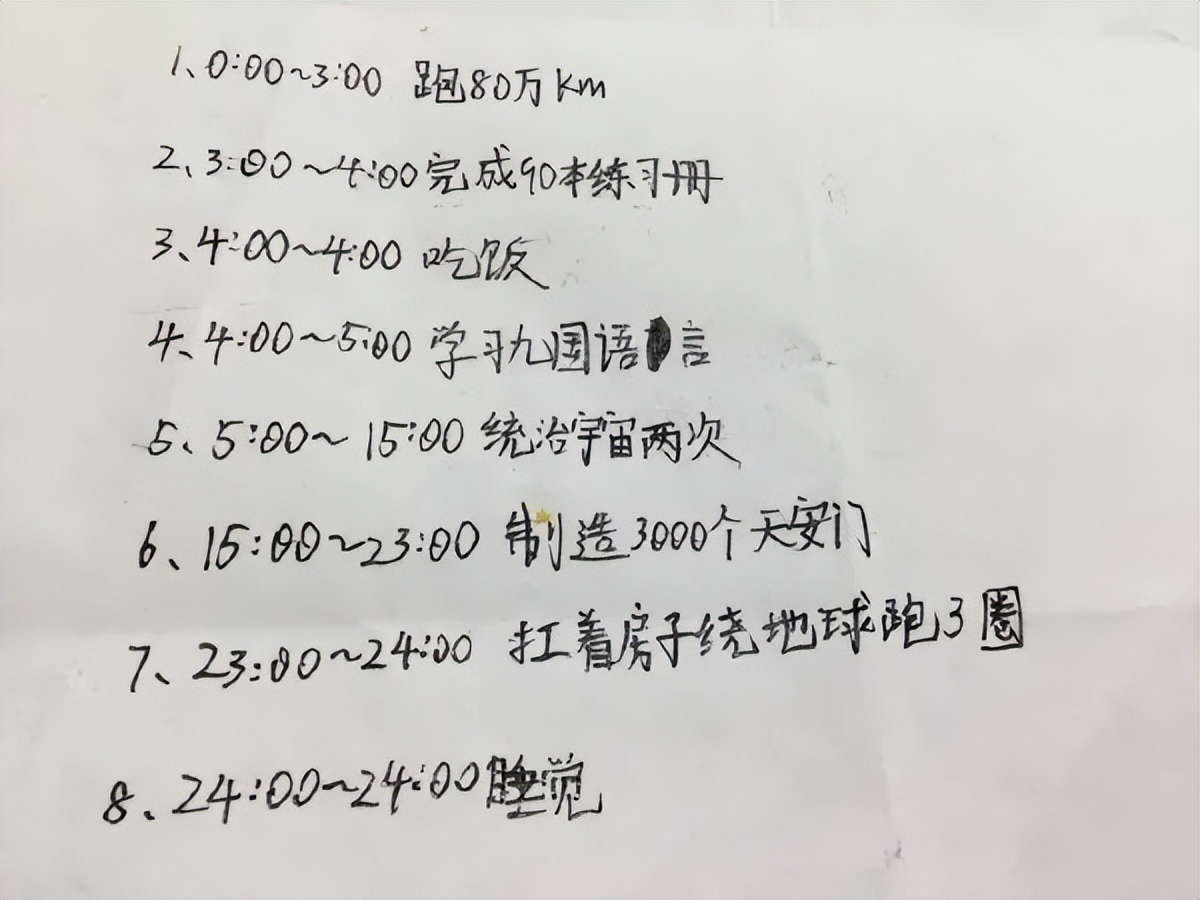 1、0:00~3:00 跑80万Km
2、3:00~4:00完成90本练习册
3、4:00~4:00 吃饭
4、4:00~5:00 学习九国语言
5、5:00~15:00 统治宇宙两次
6、15:00~23:00 制造3000个天安门
7、23:00~24:00 扛着房子绕地球跑3圈
8、24:00~24:00睡觉